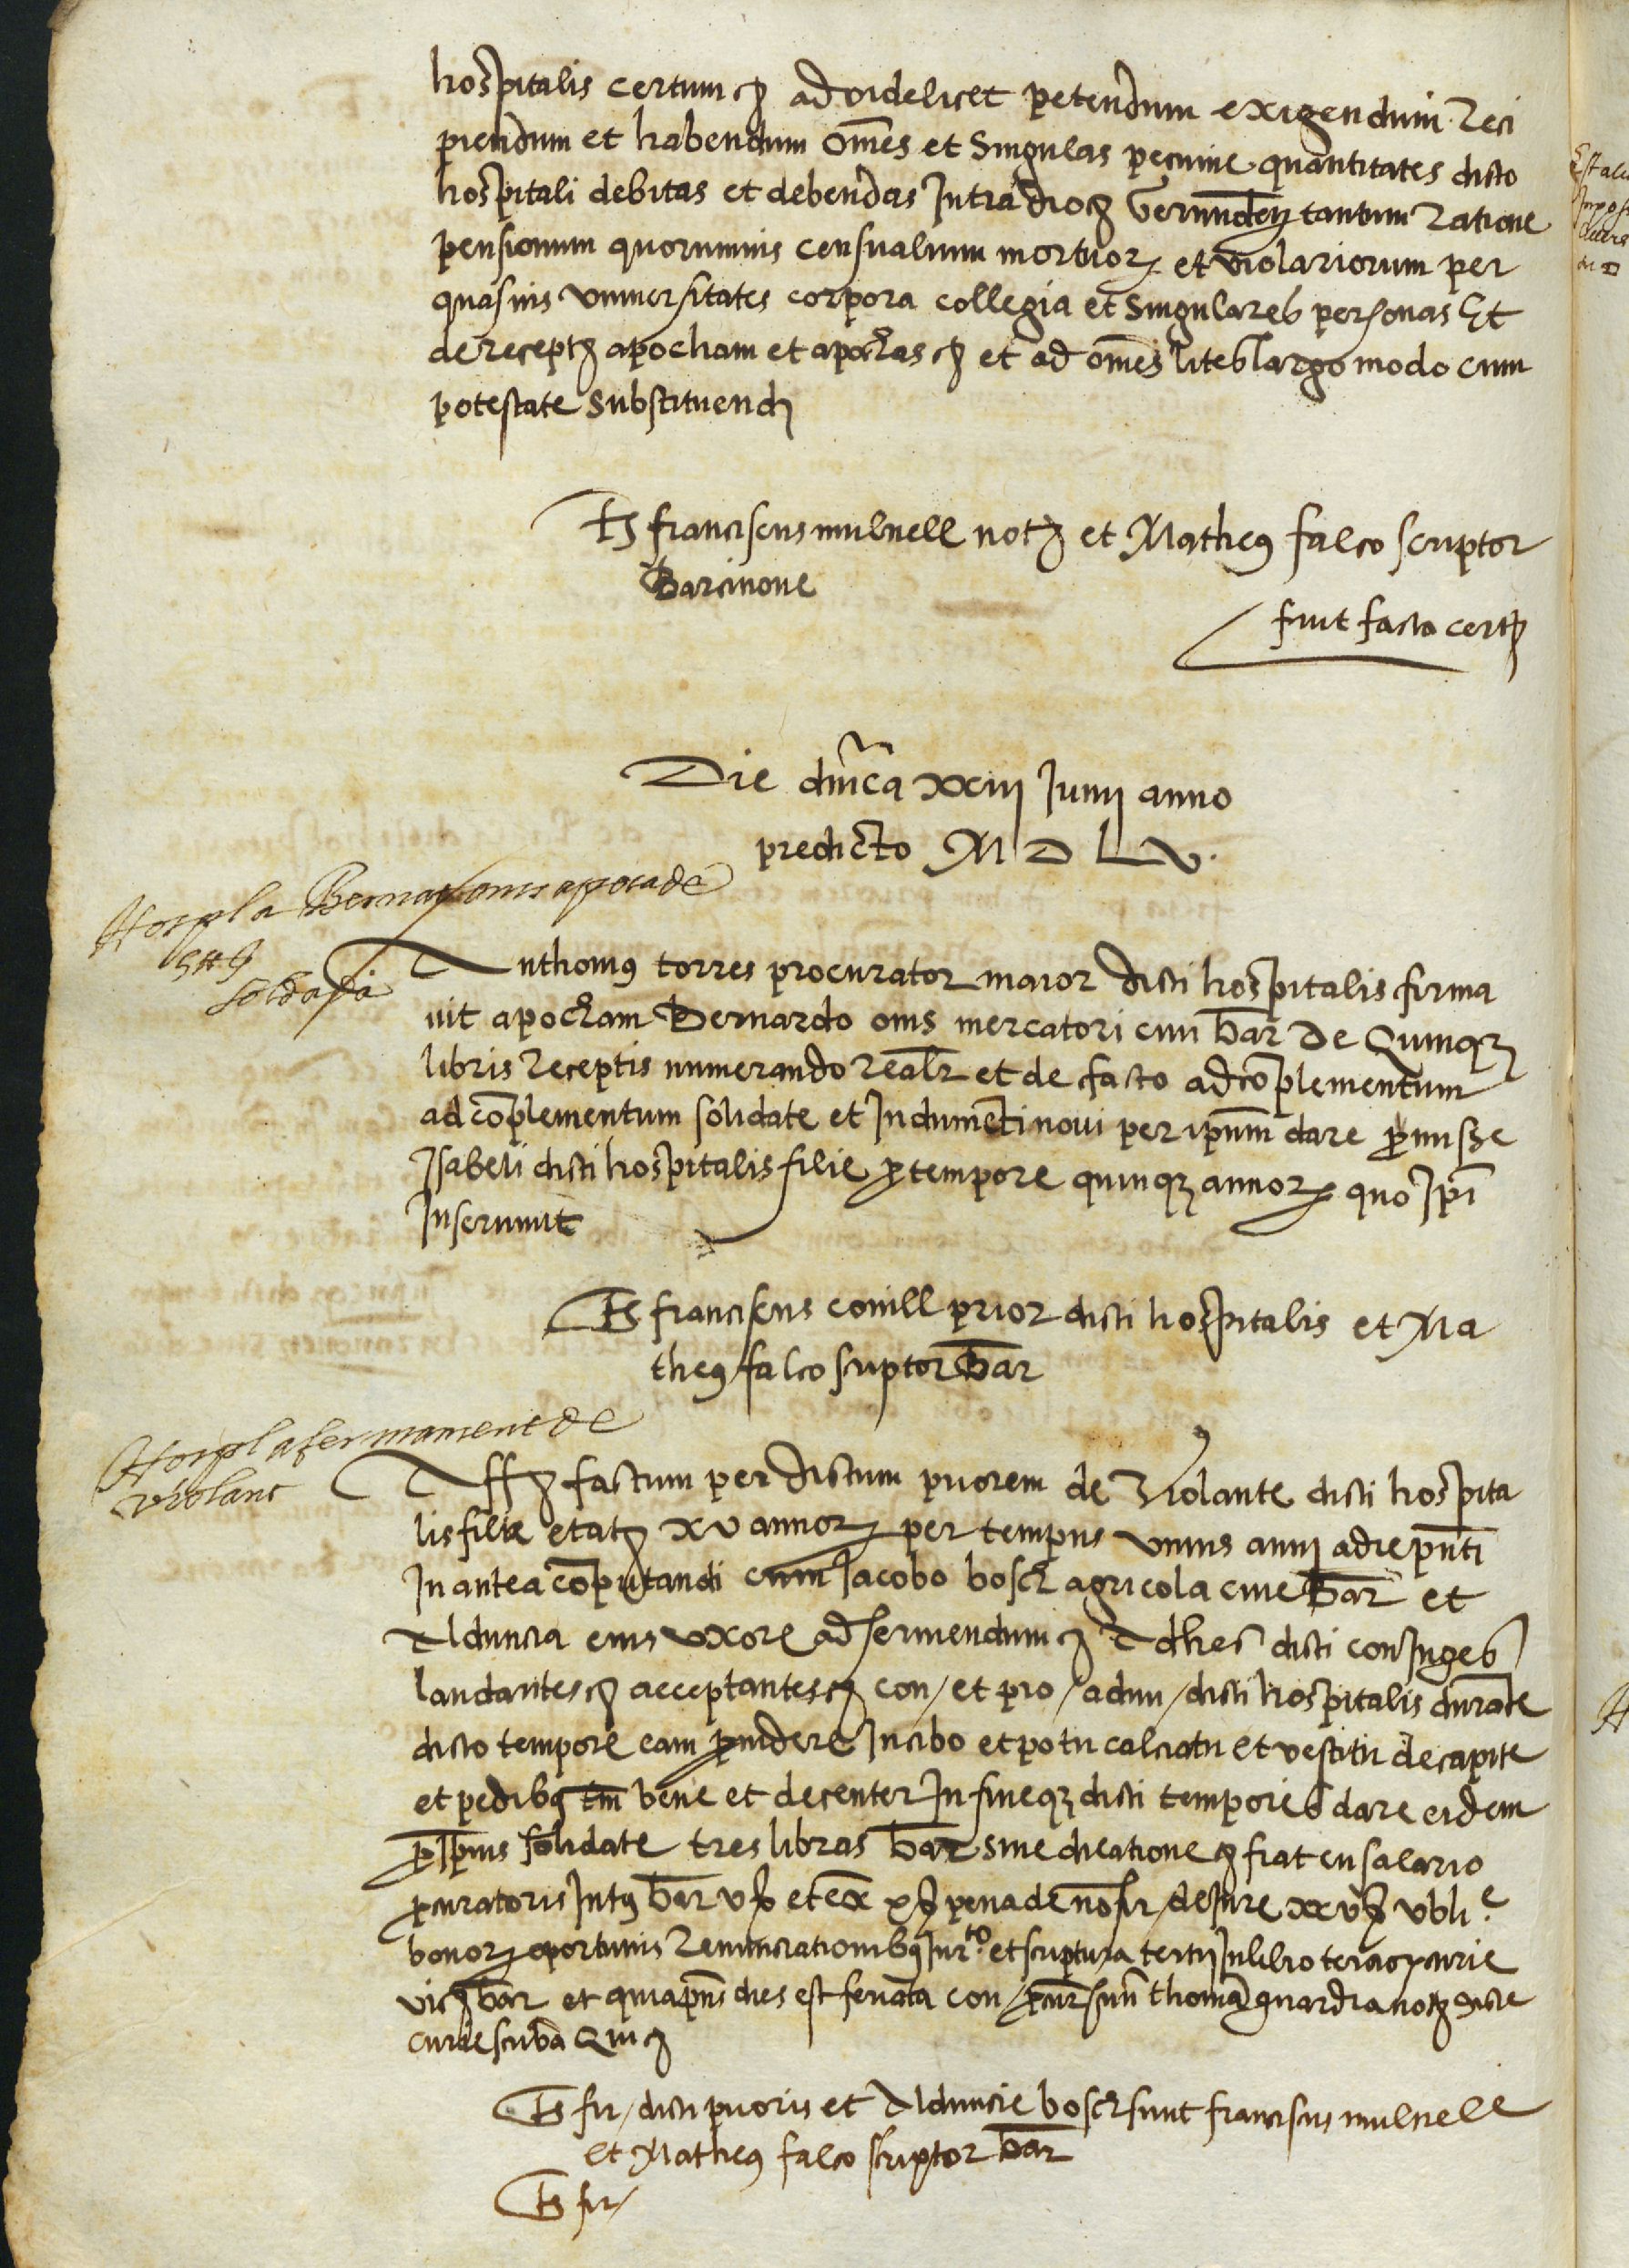 hospitalis certum ꝛ ad videlicet petendum exigendum reci
piendum et habendum om̄es et Singulas pecunie quantitates dicto
hospitali debitas et debendas Intra dioc̨ Gerunden̄ tantum ratione
pensionum quorumuis censualium mortuoꝝ et violariorum per
quasuis vniuersitates corpora collegia et Singulares personas Et
de receptꝭ apocham et apochas ꝛ et ad om̄es lites largo modo cum
potestate Substituendi
Ts franciscus mulnell notꝭ et Matheꝰ falco scriptor
Barcinone
fuit facta certꝭ
Die dm̄ica xxiij Junij anno
predicto M D L v.
Hospl a Bernat oms apoca de
soldada
Anthoniꝰ torres procurator maior dicti hospitalis firma
uit apocham Bernardo oms mercatori ciui bar̄ de Quinqꝫ
libris receptis numerando realr̄ et de facto ad cōplementum
ad cōplementum solidate et Indumenti noui per ip̄um dare ꝓmisse
Isabeli dicti hospitalis filie ꝓ tempore quinqꝫ annoꝝ quo Ip̄i
Inseruiuit
Ts franciscus conill prior dicti hospitalis et Ma
theꝰ falco scriptor bar̄
Hospl afermament de
violant
Affꝭ factum per dictum priorem de Violante dicti hospita
lis filia etatꝭ xv annoꝝ per tempus vnius anni a die pn̄ti
In antea cōputandi cum Jacobo bosch agricola ciue bar̄ et
Alduncia eius vxore ad seruiendum ꝛ Ad hec dicti coniuges
laudantes ꝛ acceptantes ꝛ con / et pro / adm / dicti hospitalis durāte
dicto tempore eam ꝓuidere In cibo et potu calciatu et vestitu de capite
et pedibꝰ tm̄ bene et decenter In fineqꝫ dicti temporis dare eidem
ꝓ Ip̄ius solidate tres libras bar̄ sine dilatione ꝛ fiat cu salario
ꝓcuratoris Intꝰ bar̄ v ß et ex̄ x ß pena de nō fir / de Iure xxv ß obli.ᵉ
bonoꝝ oportunis renunciationibꝰ Iur.ᵗᵒ et scriptura tertij In libro tercioꝝ curie
vicꝭ bar̄ et quia pn̄s dies est feriata con / ꝓcur̄ suū thomā guardia notꝭ dicte
curie scribā Qui ꝛ
Ts fir / dicti prioris et Alduncie bosch sunt franciscus mulnell
et Matheꝰ falco scriptor bar̄
Ts fir /